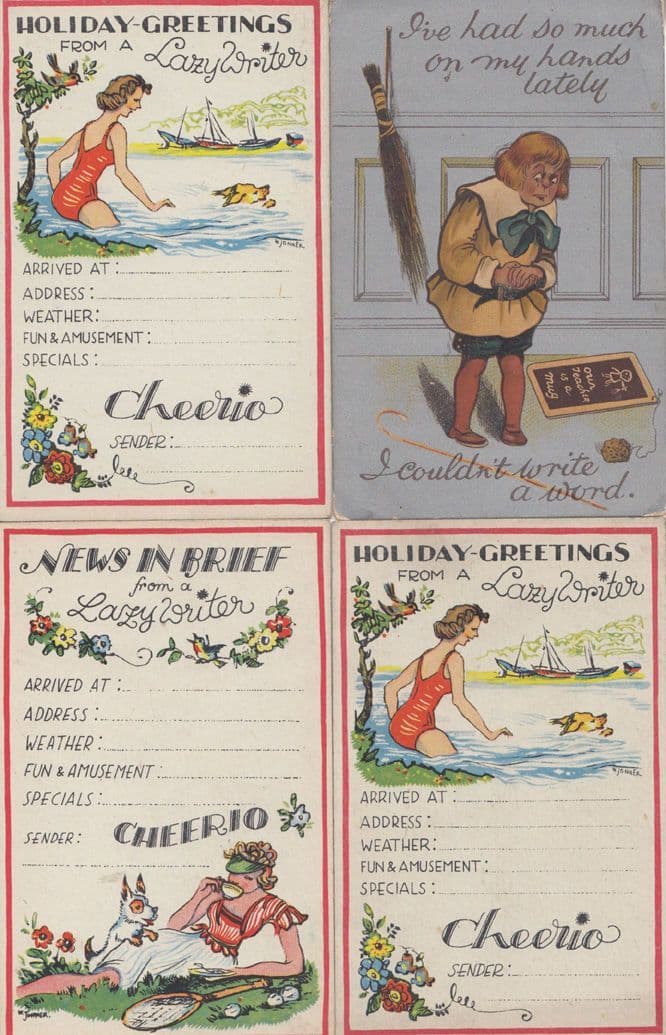 HOLIDAY-GREETINGS
FROM A Lazy Writer
W JONKER.
ARRIVED AT :
ADDRESS :
WEATHER:
FUN & AMUSEMENT:
SPECIALS :
Cheerio
SENDER:
I've had so much
on my hands
lately
our
teacher
is a
mug
I couldn't write
a word.
NEWS IN BRIEF
from a
Lazy Writer
ARRIVED AT :
ADDRESS :
WEATHER :
FUN & AMUSEMENT :
SPECIALS :
CHEERIO
SENDER:
W JONKER.
HOLIDAY-GREETINGS
FROM A Lazy Writer
W JONKER.
ARRIVED AT :
ADDRESS :
WEATHER:
FUN & AMUSEMENT :
SPECIALS :
Cheerio
SENDER: